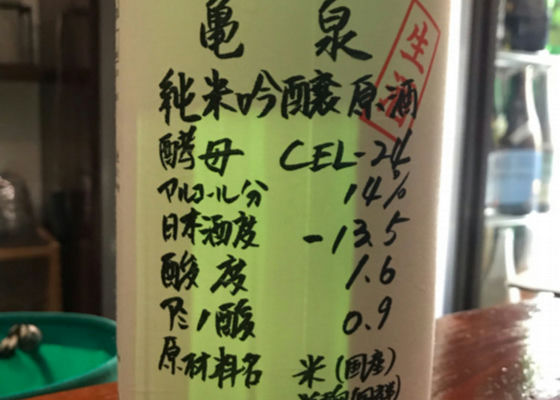 亀泉
生酒
純米吟醸原酒
酵母 CEL-24
アルコール分 14%
日本酒度 -13.5
酸度 1.6
アミノ酸 0.9
原材料名 米(国産)